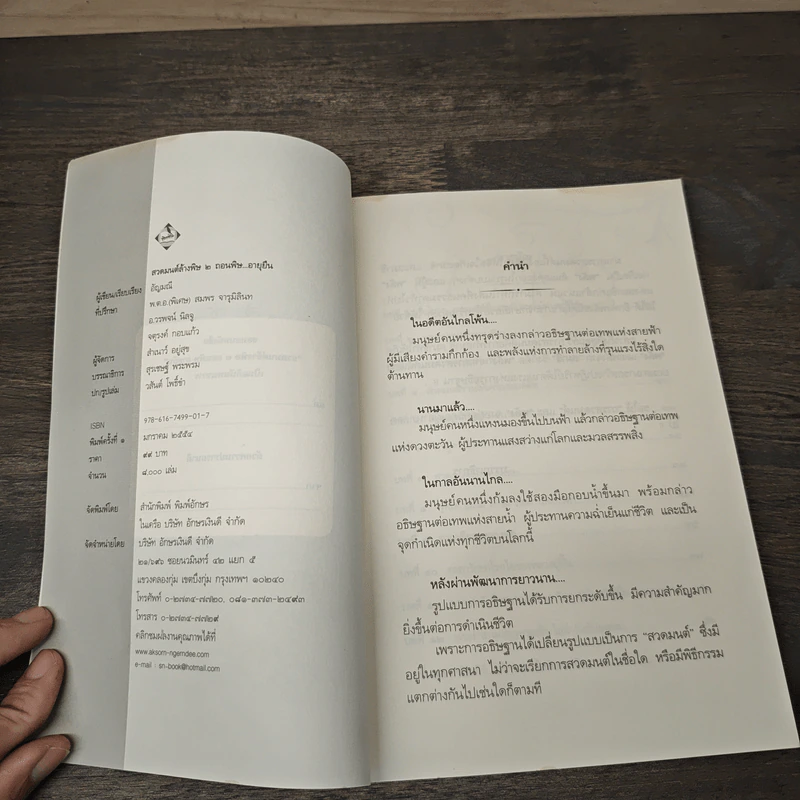 สวดมนต์ล้างพิษ ๒ ถอนพิษ...อายุยืน
ผู้เขียน/เรียบเรียง อัญมณี
ที่ปรึกษา พ.ต.อ.(พิเศษ) สมพร จารุมิลินท
อ.วรพจน์ นิลจู
จตุรงค์ กอบแก้ว
ผู้จัดการ สำเนาว์ อยู่สุข
บรรณาธิการ สุรเชษฐ์ พระพรม
ปก/รูปเล่ม วสันต์ โพธิ์ขำ
ISBN 978-616-7499-01-7
พิมพ์ครั้งที่ ๑ มกราคม ๒๕๕๔
ราคา ๙๙ บาท
จำนวน ๘,๐๐๐ เล่ม
จัดพิมพ์โดย สำนักพิมพ์ พิมพ์อักษร
ในเครือ บริษัท อักษรเงินดี จำกัด
จัดจำหน่ายโดย บริษัท อักษรเงินดี จำกัด
๒๑/๖๙๖ ซอยนวมินทร์ ๔๒ แยก ๕
แขวงคลองกุ่ม เขตบึงกุ่ม กรุงเทพฯ ๑๐๒๔๐
โทรศัพท์ ๐-๒๗๓๔-๗๗๒๐, ๐๘๑-๓๗๓-๒๔๙๓
โทรสาร ๐-๒๗๓๔-๗๗๒๙
คลิกชมผลงานคุณภาพได้ที่
www.aksorn-ngerndee.com
e-mail : sn-book@hotmail.com
คำนำ
ในอดีตอันไกลโพ้น....
มนุษย์คนหนึ่งทรุดร่างลงกล่าวอธิษฐานต่อเทพแห่งสายฟ้า
ผู้มีเสียงคำรามกึกก้อง และพลังแห่งการทำลายล้างที่รุนแรงไร้สิ่งใด
ต้านทาน
นานมาแล้ว....
มนุษย์คนหนึ่งแหงนมองขึ้นไปบนฟ้า แล้วกล่าวอธิษฐานต่อเทพ
แห่งดวงตะวัน ผู้ประทานแสงสว่างแก่โลกและมวลสรรพสิ่ง
ในกาลอันนานไกล....
มนุษย์คนหนึ่งก้มลงใช้สองมือกอบน้ำขึ้นมา พร้อมกล่าว
อธิษฐานต่อเทพแห่งสายน้ำ ผู้ประทานความฉ่ำเย็นแก่ชีวิต และเป็น
จุดกำเนิดแห่งทุกชีวิตบนโลกนี้
หลังผ่านพัฒนาการยาวนาน....
รูปแบบการอธิษฐานได้รับการยกระดับขึ้น มีความสำคัญมาก
ยิ่งขึ้นต่อการดำเนินชีวิต
เพราะการอธิษฐานได้เปลี่ยนรูปแบบเป็นการ "สวดมนต์" ซึ่งมี
อยู่ในทุกศาสนา ไม่ว่าจะเรียกการสวดมนต์ในชื่อใด หรือมีพิธีกรรม
แตกต่างกันไปเช่นใดก็ตามที